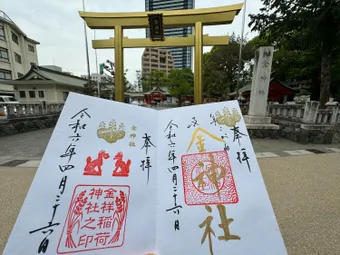 金神社
奉拝
金
神
社
令和六年四月二十六日
奉拝
金神社
金祥稲荷
神社之印
令和六年四月二十六日